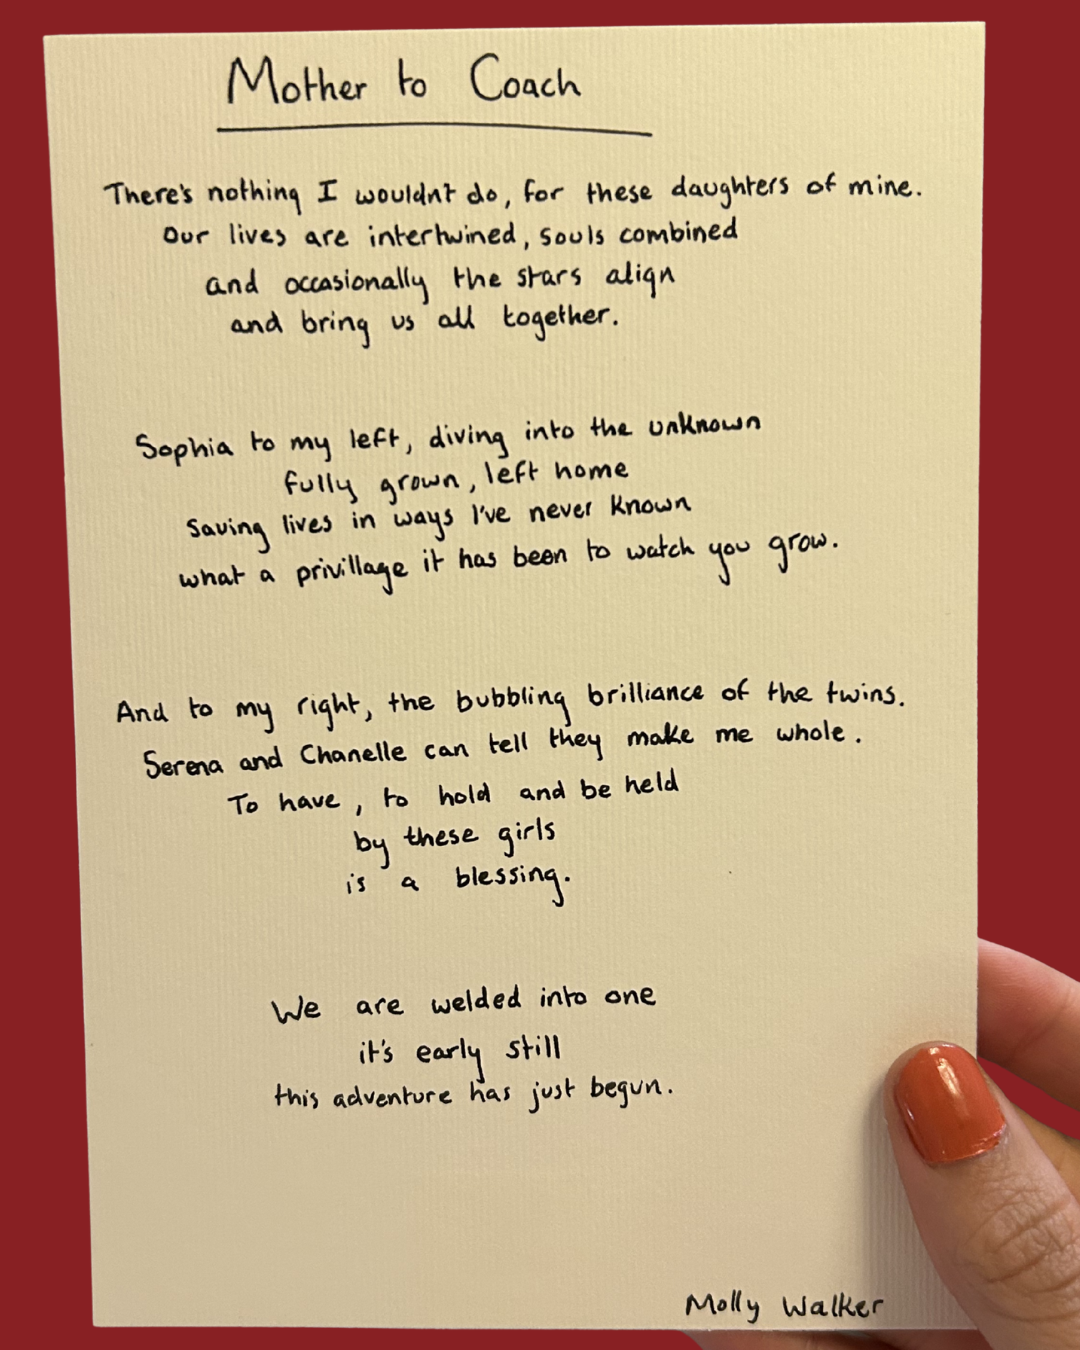 Mother to Coach
There's nothing I wouldnt do, for these daughters of mine.
Our lives are intertwined, souls combined
and occasionally the stars align
and bring us all together.
Sophia to my left, diving into the unknown
fully grown, left home
Saving lives in ways I've never known
what a privillage it has been to watch you grow.
And to my right, the bubbling brilliance of the twins.
Serena and Chanelle can tell they make me whole.
To have, to hold and be held
by these girls
is a blessing.
We are welded into one
it's early still
this adventure has just begun.
Molly Walker